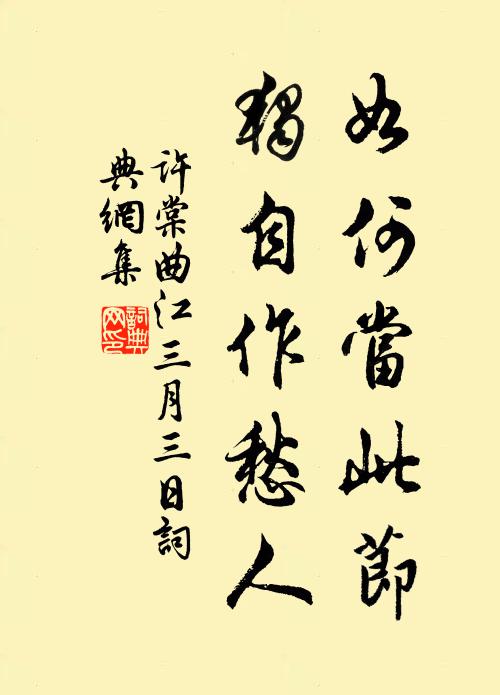 如何當此節
獨自作愁人
許棠曲江三月三日詞
典網集
詞典
网印